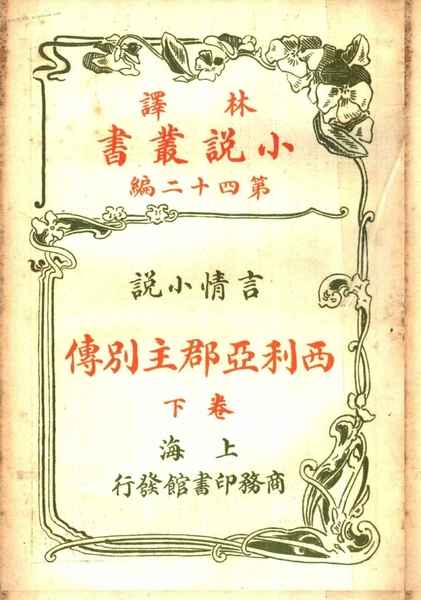 林譯
小說叢書
第四十二編
言情小說
西利亞郡主別傳
卷下
上海
商務印書館發行